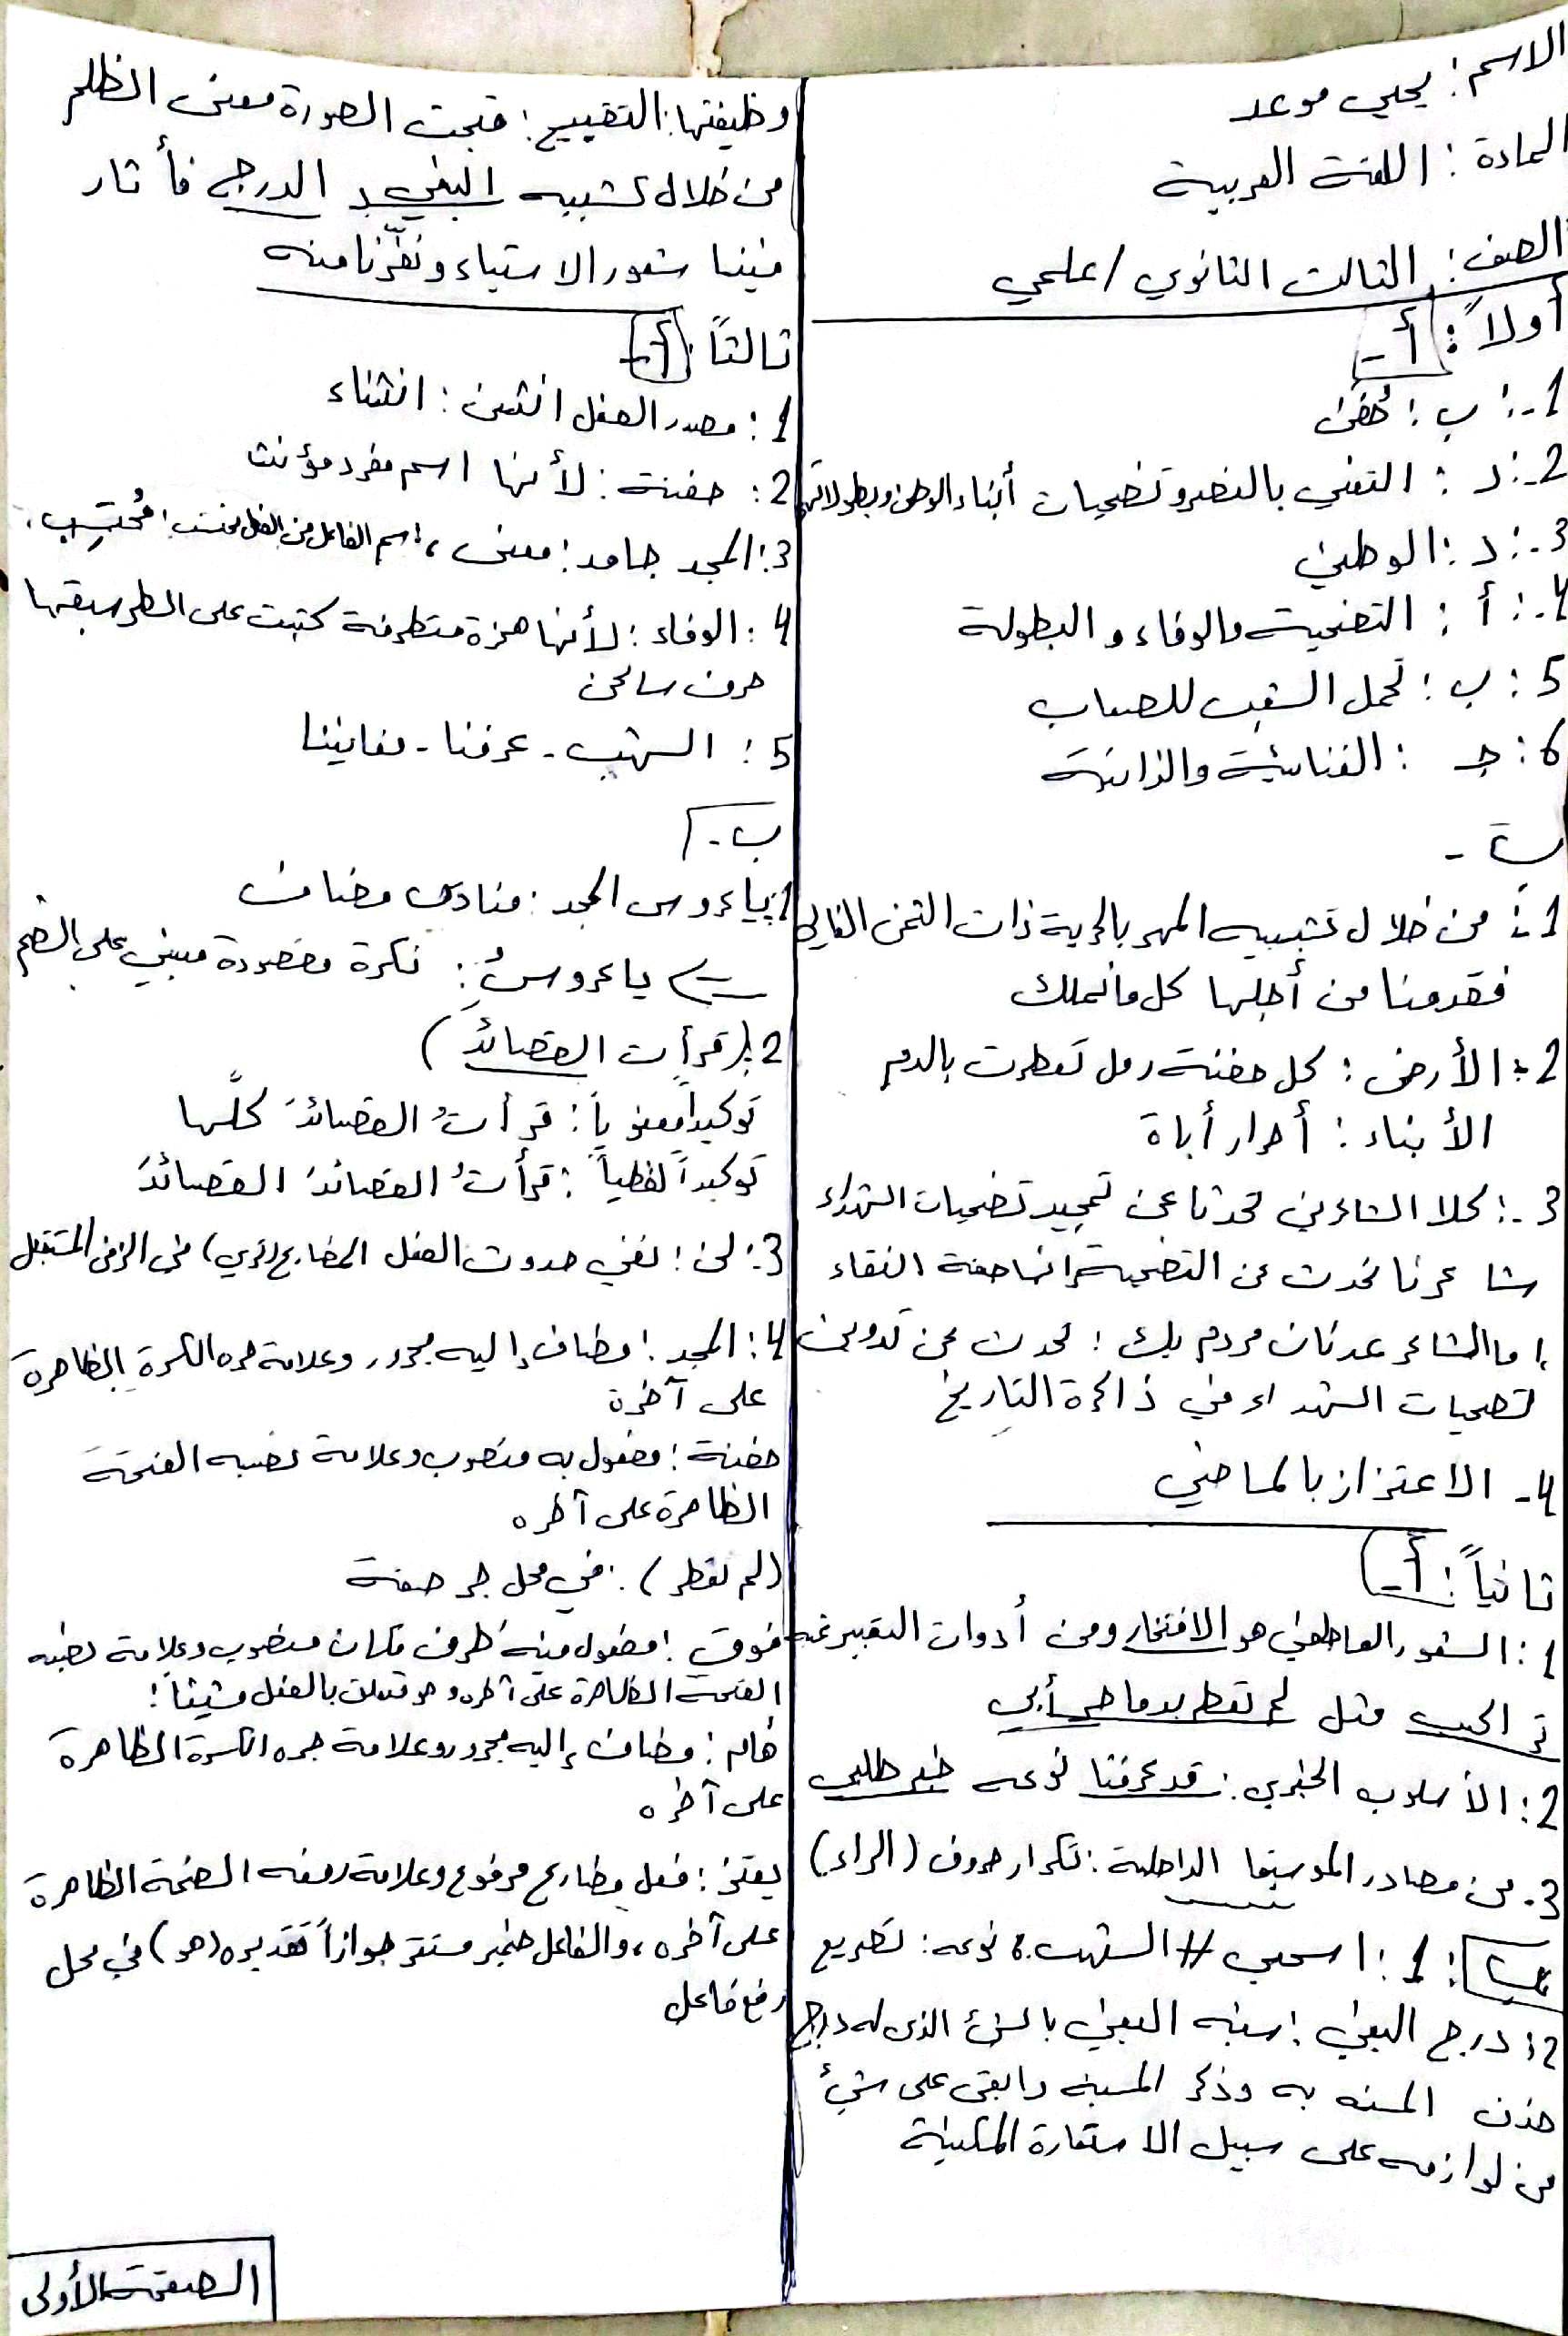 الاسم : يحيى موعد
المادة : اللغة العربية
الصف : الثالث الثانوي / علمي
أولاً : أ -
1 - : ب : خفق
2 - : د : التغني بالنصر و تضحيات أبناء الوطن وبطولاتهم
3 - : د : الوطني
4 - : أ : التضحية والوفاء و البطولة
5 : ب : تحمل الشعب للصعاب
6 : جـ : الغنائية والذاتية
ب -
1 : من خلال تشبيه المهر بالحرية ذات الثمن الغالي
فقدمنا من أجلها كل ما نملك
2 : الأرض : كل حفنة رمل تعطرت بالدم
الأبناء : أحرار أباة
3 - : كلا الشاعرين تحدثا عن تمجيد تضحيات الشهداء
شاعرنا تحدث عن التضحية انها صفة النقاء
اما الشاعر عدنان مردم بك : تحدث عن تدوين
تضحيات الشهداء في ذاكرة التاريخ
4 - الاعتزاز بالماضي
ثانياً : أ -
1 : الشعور العاطفي هو الافتخار ومن أدوات التعبير عنه
تر الحب مثل لم تعطر بدما حر أبي
2 : الأسلوب الخبري : قد عرفنا نوعه خبر طلبي
3 - من مصادر الموسيقا الداخلية : تكرار حروف (الراء)
ب : 1 : اسحبي # الشهب . نوعه : تصريع
2 : درج البغي : شبه البغي بالشئ الذي له درج
حذف المشبه به وذكر المشبه وابقى على شيئ
من لوازمه على سبيل الاستعارة المكنية
وظيفتها : التقبيح : قبحت الصورة معنى الظلم
من خلال تشبيه البغي بـ الدرج فأثار
فينا شعور الاستياء ونفّرنا منه
ثالثاً : أ -
1 : مصدر الفعل انثنى : انثناء
2 : حفنة : لأنها اسم مفرد مؤنث
3 : المجد جامد : معنى ، اسم الفاعل من الفعل : مُحتسِب .
4 : الوفاء : لأنها همزة متطرفة كتبت على السطر سبقها
حرف ساكن
5 : الشهب - عرفنا - مغانينا
ب -
1 : يا عروس المجد : منادى مضاف
يا عروسُ : نكرة مقصودة مبني على الضم
2 : ( قرأت القصائد )
توكيداً معنوياً : قرأتُ القصائدَ كلَّها
توكيداً لفظياً : قرأتُ القصائدَ القصائدَ
3 : لن : نفي حدوث الفعل المضارع (تري) في الزمن المستقبل
4 : المجد : مضاف إليه مجرور وعلامة جره الكسرة الظاهرة
على آخره
حفنة : مفعول به منصوب وعلامة نصبه الفتحة
الظاهرة على آخره
(لم تعطر) : في محل جر صفة
فوق : مفعول فيه ظرف مكان منصوب وعلامة نصبه
الفتحة الظاهرة على آخره وهو متعلق بالفعل
هام : مضاف إليه مجرور وعلامة جره الكسرة الظاهرة
على آخره
يعتز : فعل مضارع مرفوع وعلامة رفعه الضمة الظاهرة
على آخره ، والفاعل ضمير مستتر جوازاً تقديره (هو) في محل
رفع فاعل
الصفحة الأولى